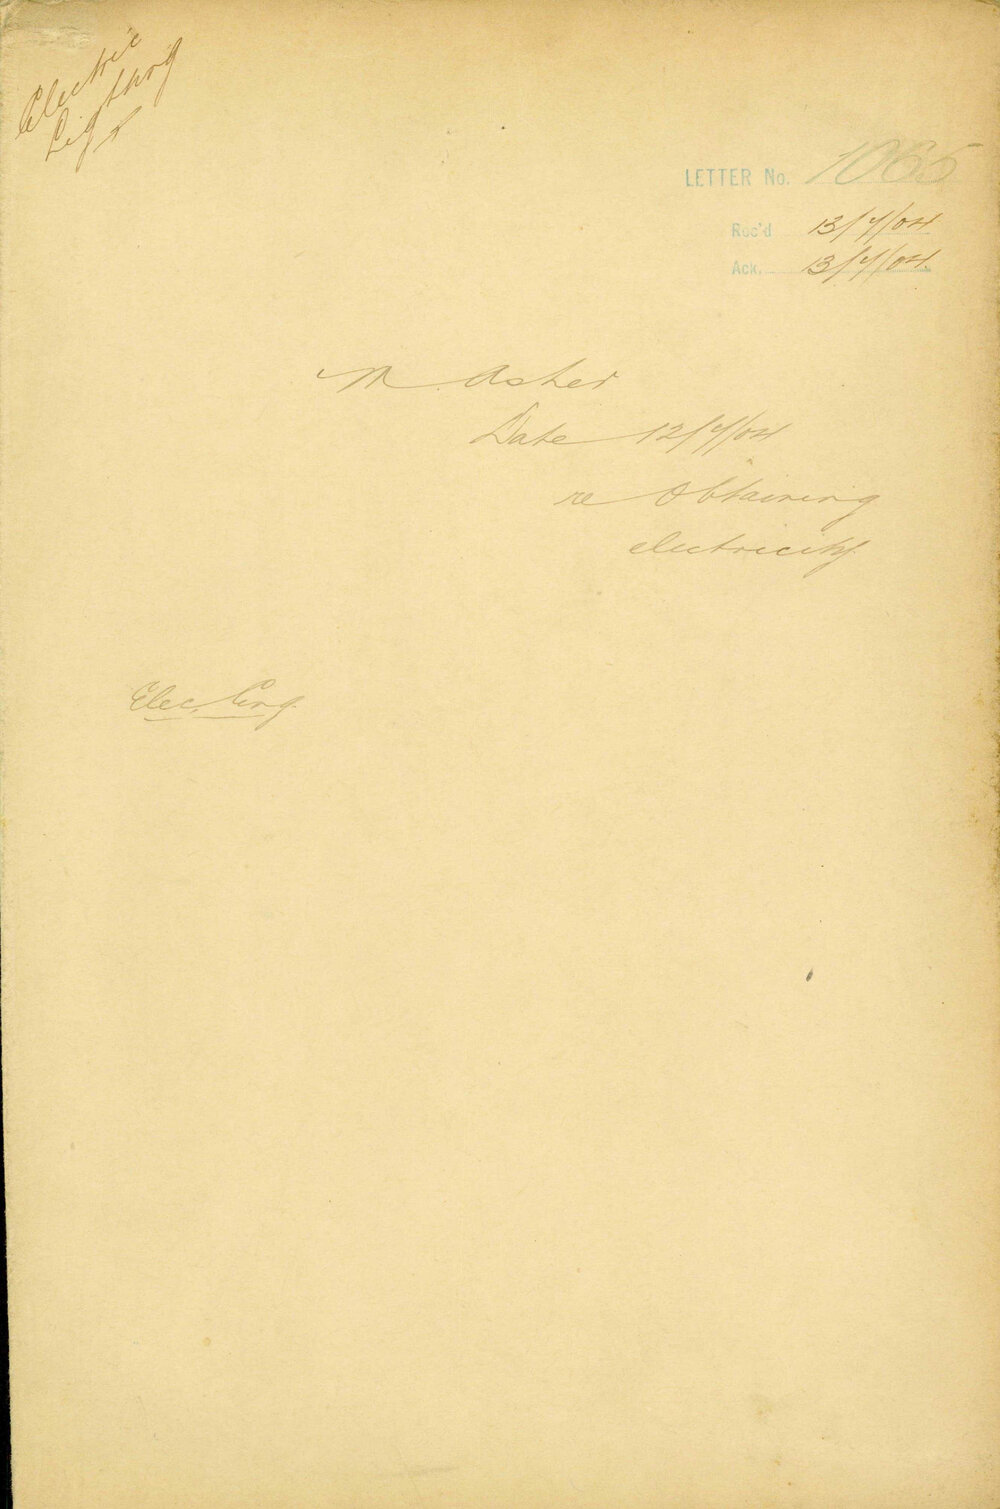 Electric
Lighting
LETTER No. 1065
Rec'd 13/7/04
Ack. 13/7/04.
M. Asher
Date 12/7/04
re Obtaining
electricity.
Elec. Eng.